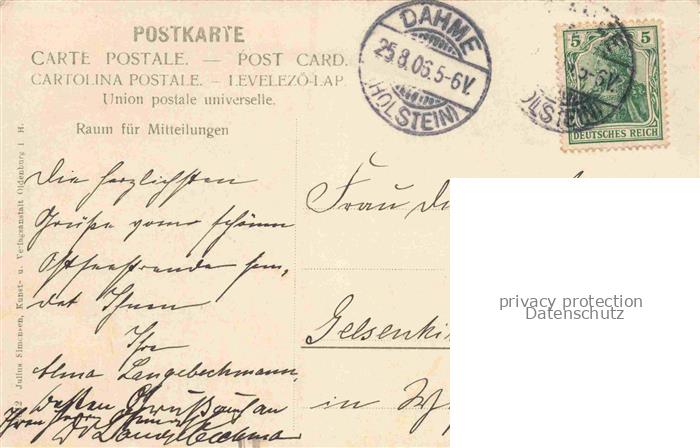 POSTKARTE
CARTE POSTALE. — POST CARD.
CARTOLINA POSTALE. — LEVELEZŐ-LAP.
Union postale universelle.
Raum für Mitteilungen
DAHME
25.8.06.5-6V.
(HOLSTEIN)
5 5
DEUTSCHES REICH
Die herzlichsten
Grüße vom schönen
Ostseestrande sen-
det Ihnen
Ihre
Alma Langebeckmann.
Besten Gruß auch an
Ihren Herrn
Langebeckma
Frau
Gelsenki
in W
privacy protection
Datenschutz
2 Julius Simonsen, Kunst- u. Verlagsanstalt Oldenburg i. H.